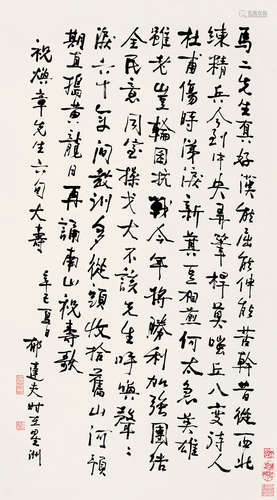 馬二先生真好漢能屈能伸能苦幹昔從西北
練精兵今到中央弄筆桿莫嗤丘八變詩人
杜甫傷時涕淚新萁豆相煎何太急英雄
雖老豈輪囷抗戰今年將勝利加強團結
全民意同室操戈大不該先生呼喚聲々
淚六十年間教訓多從頭收拾舊山河預
期直搗黃龍日再誦南山祝壽歌
祝煥章先生六旬大壽
辛巳夏日
郁達夫时在星洲